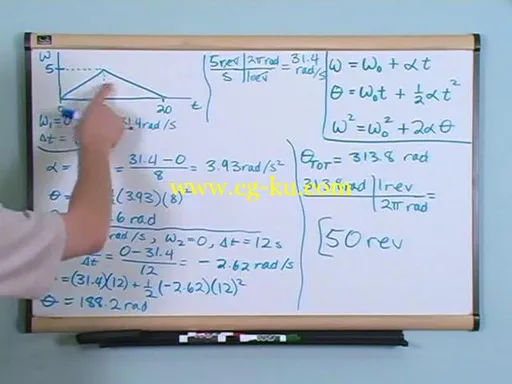 ω
5
20
t
ω₁=0
31.4 rad/s
Δt =
α = = 31.4 - 0 / 8 = 3.93 rad/s²
θ = (3.93)(8)²
.6 rad
rad/s, ω₂=0, Δt = 12s
Δt = 0 - 31.4 / 12 = - 2.62 rad/s
= (31.4)(12) + 1/2 (-2.62)(12)²
θ = 188.2 rad
5 rev / s | 2π rad / 1 rev = 31.4 rad/s
ω = ω₀ + αt
θ = ω₀t + 1/2 αt²
ω² = ω₀² + 2αθ
θTOT = 313.8 rad
313.8 rad | 1 rev / 2π rad =
50 rev
www.cg-ku.com